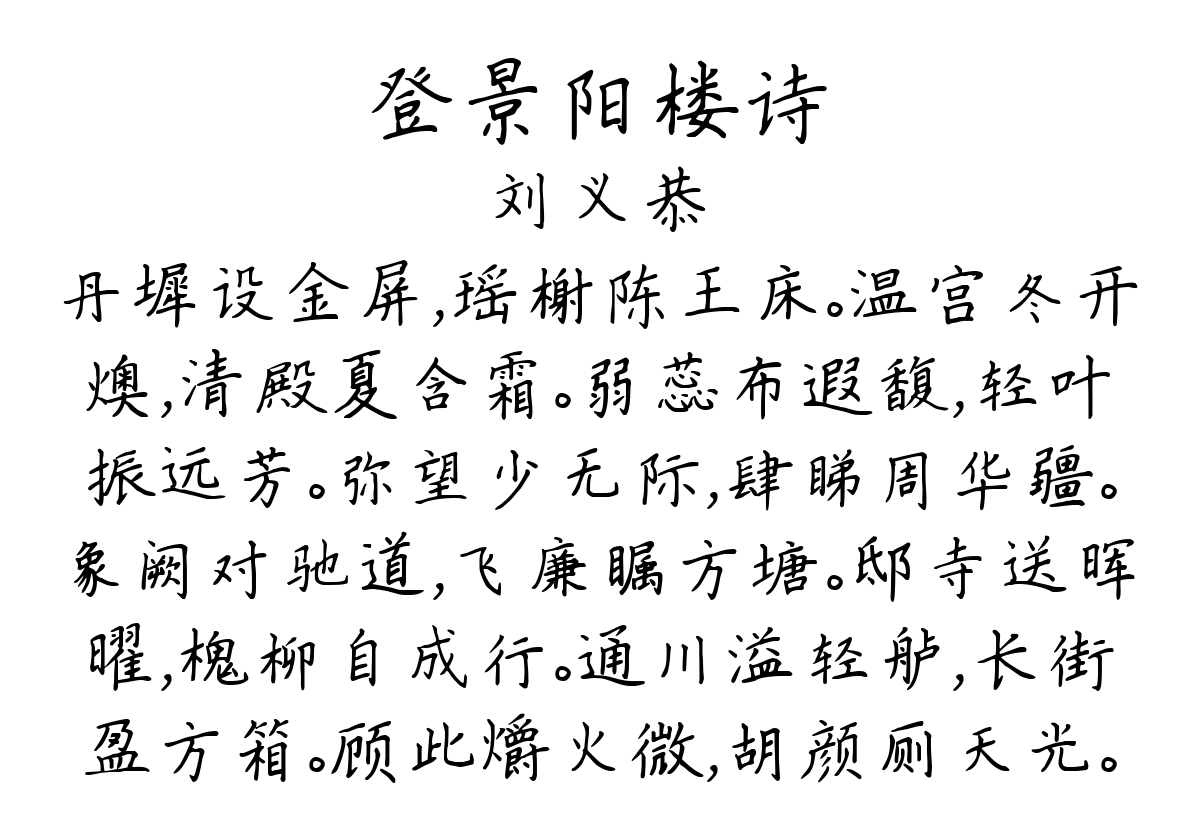 登景阳楼诗
刘义恭
丹墀设金屏,瑶榭陈王床。温宫冬开
燠,清殿夏含霜。弱蕊布遐馥,轻叶
振远芳。弥望少无际,肆睇周华疆。
象阙对驰道,飞廉瞩方塘。邸寺送晖
曜,槐柳自成行。通川溢轻舻,长街
盈方箱。顾此爝火微,胡颜厕天光。